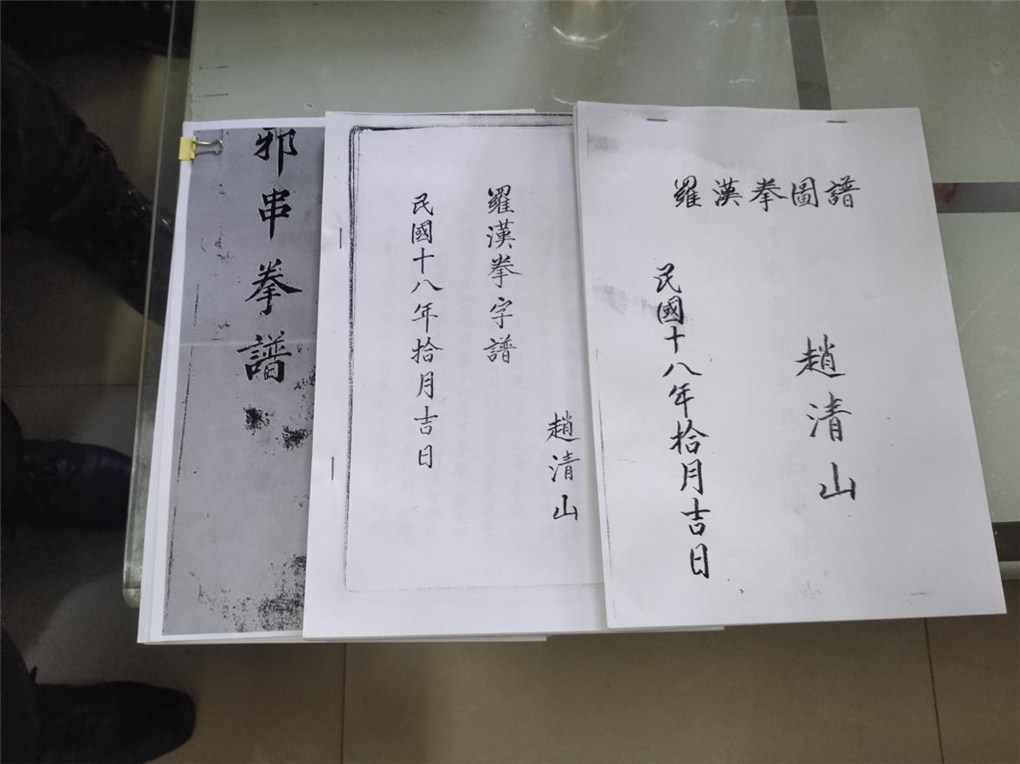 邪串拳譜
羅漢拳字譜
民國十八年拾月吉日
趙清山
羅漢拳圖譜
趙清山
民國十八年拾月吉日